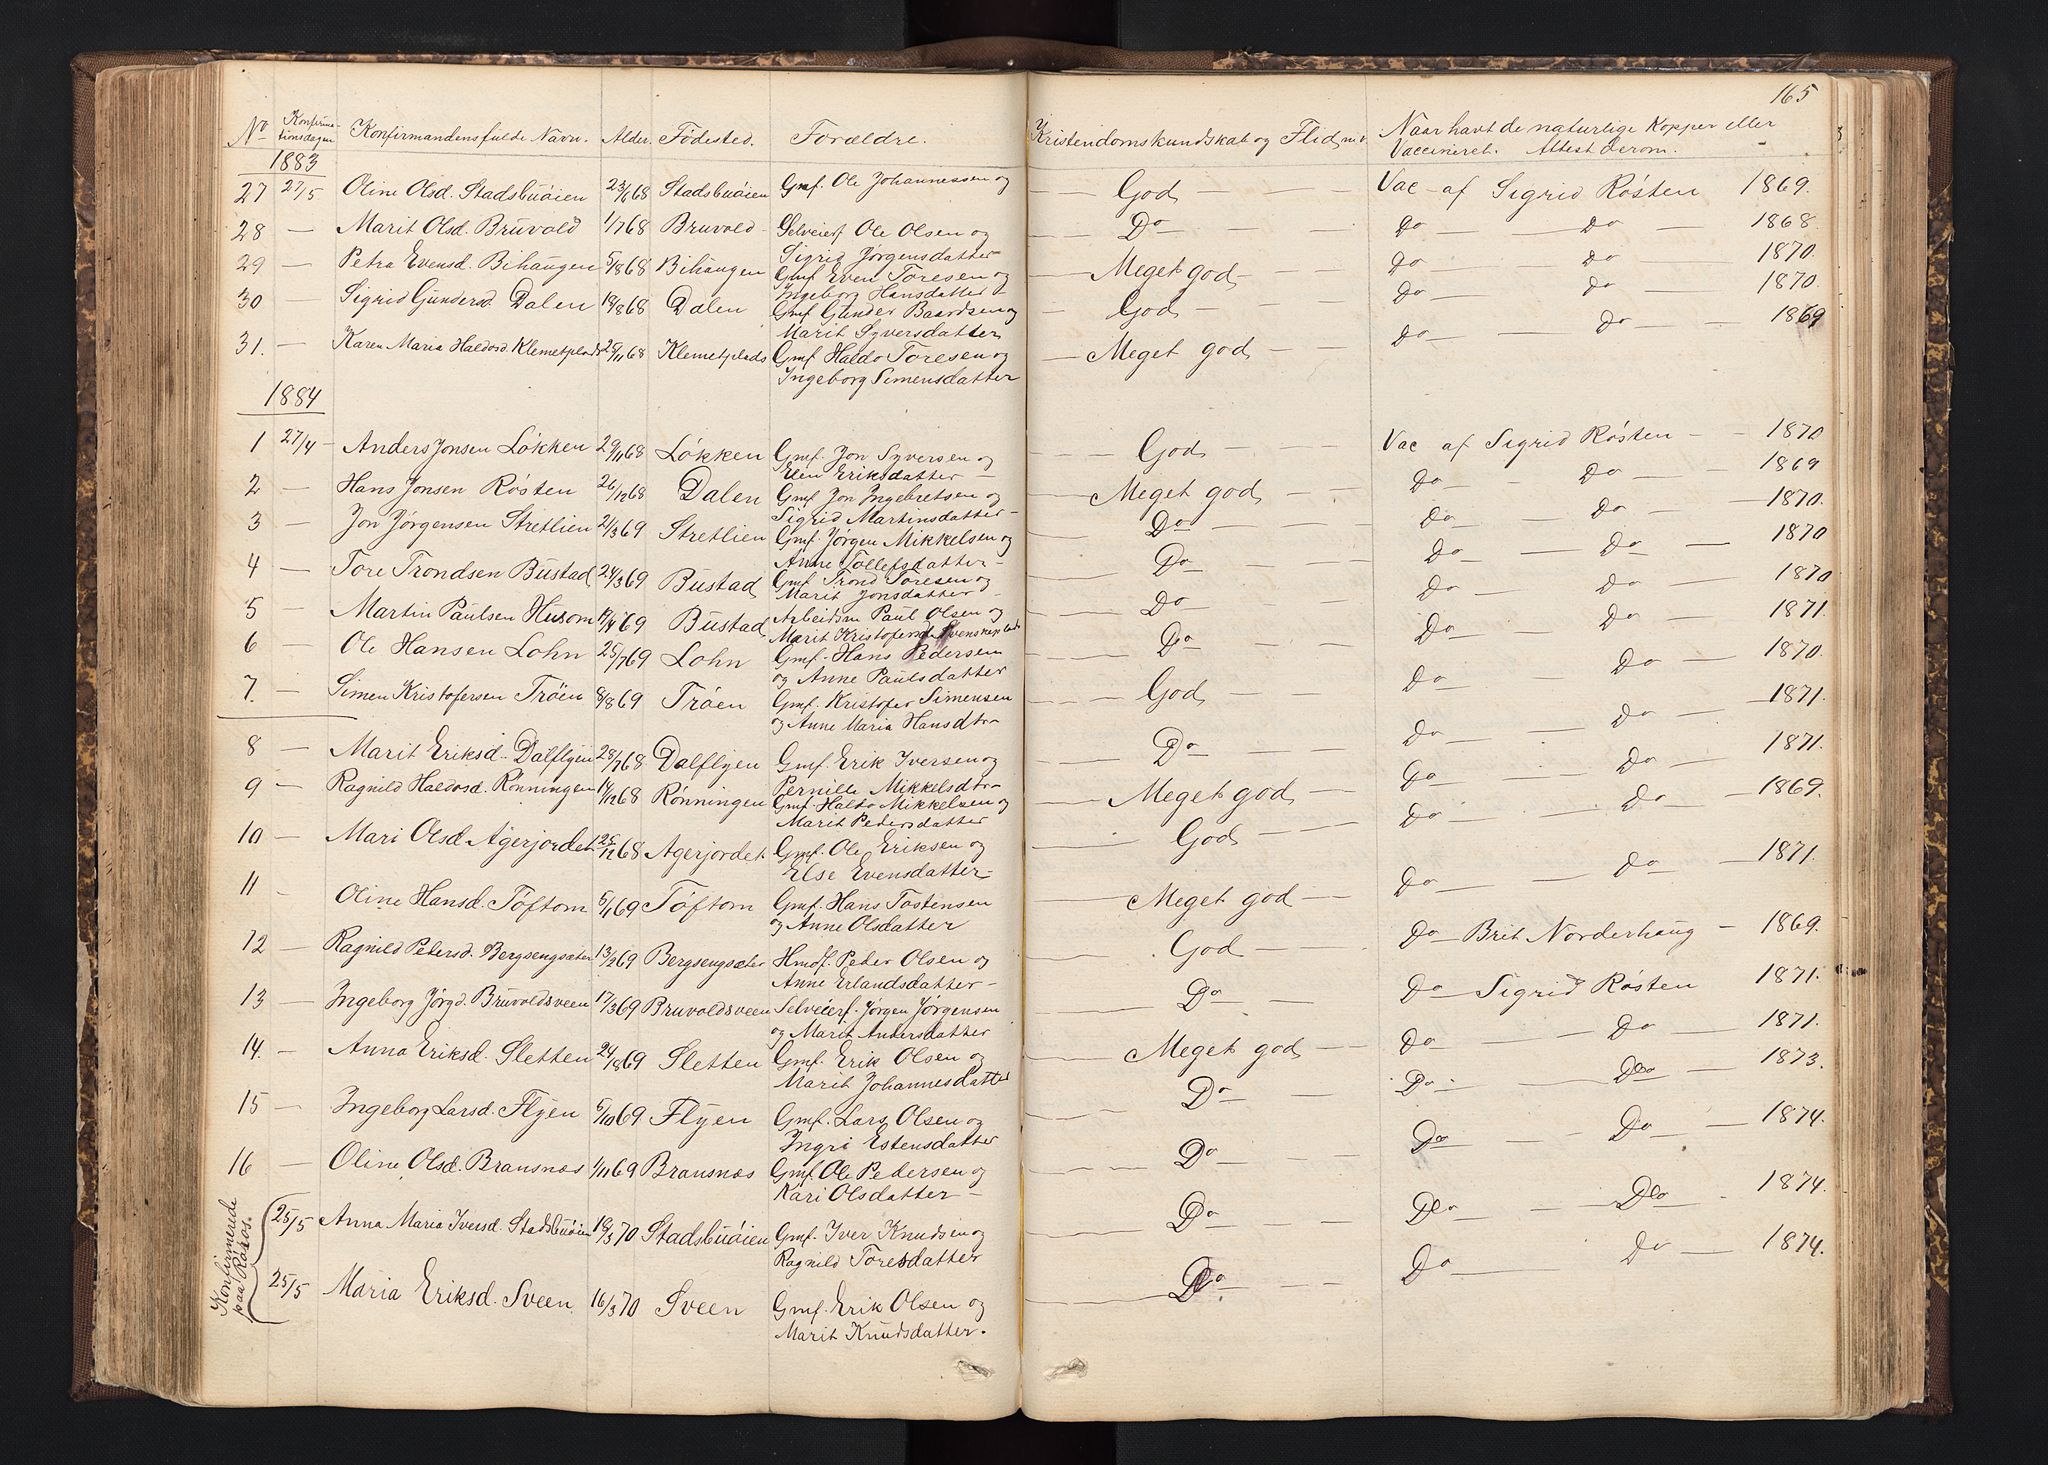 165
No Konfirmationsdagen Konfirmandens fulde Navn. Alder. Fødested. Forældre. Kristendomskundskab og Flid m.v. Naar havt de naturlige Kopper eller Vaccineret. Attest derom.
1883
27 27/5 Oline Olsd. Stadsbuøien 23/6 68 Stadsbuøien Gmf. Ole Johannessen og — God — Vac af Sigrid Røsten 1869.
28 — Marit Olsd. Bruvold 1/7 68 Bruvold Selveierf Ole Olsen og Sigrid Jørgensdatter — Do — Do — Do — 1868
29 — Petra Evensd. Bihaugen 5/8 68 Bihaugen Gmf Even Toresen og Ingeborg Hansdatter — Meget god — Do — Do — 1870.
30 — Sigrid Gundersd Dalen 19/8 68 Dalen Gmf Gunder Baardsen og Marit Syversdatter — God — Do — Do — 1870
31. — Karen Maria Haldosd. Klemetplads 25/11 68 Klemetplads Gmf Haldo Toresen og Ingeborg Simensdatter — Meget god — Do — Do — 1869
1884
1 27/4 Anders Jonsen Løkken 29/11 68 Løkken Gmf. Jon Syversen og Elen Eriksdatter — God — Vac af Sigrid Røsten — 1870
2 — Hans Jonsen Røsten 26/12 68 Dalen Gmf Jon Ingebretsen og Sigrid Martinsdatter — Meget god — Do — Do — 1869
3 — Jon Jørgensen Stretlien 2/3 69 Stretlien Gmf. Jørgen Mikkelsen og Anne Tollefsdatter — Do — Do — Do — 1870.
4 — Tore Trondsen Bustad 24/3 69. Bustad Gmf Trond Toresen og Marit Jonsdatter — Do — Do — Do — 1870
5 — Martin Paulsen Husom 19/4 69 Bustad Arbeidsm Paul Olsen og Marit Kristofersd — Do — Do — Do — 1870
6 — Ole Hansen Lohn 25/7 69 Lohn Gmf. Hans Pedersen og Anne Paulsdatter — Do — Do — Do — 1871.
7. — Simen Kristofersen Trøen 8/8 69 Trøen Gmf. Kristofer Simensen og Anne Maria Hansdtr — God — Do — Do — 1870.
8 — Marit Eriksd. Dalflyen 28/7 68 Dalflyen Gmf. Erik Iversen og Pernille Mikkelsdtr — Do — Do — Do — 1871.
9 — Ragnild Haldosd. Rønningen 11/12 68 Rønningen Gmf. Haldo Mikkelsen og Marit Pedersdatter — Meget god — Do — Do — 1871.
10 — Mari Olsd Agerjordet 25/12 68 Agerjordet Gmf. Ole Eriksen og Else Evensdatter — God — Do — Do — 1869.
11 — Oline Hansd. Toftom 5/1 69 Toftom Gmf. Hans Tostensen og Anne Olsdatter — Meget god — Do — Do — 1871.
12 — Ragnild Petersd. Bergsengsæter 13/2 69 Bergsengsæter Hmdf. Peder Olsen og Anne Erlandsdatter — God — Do — Brit Norderhaug — 1869.
13 — Ingeborg Jørgd. Bruvoldsveen 17/3 69 Bruvoldsveen Selveierf. Jørgen Jørgensen og Marit Andersdatter — Do — Do — Sigrid Røsten 1871.
14. — Anna Eriksd. Sletten 24/8 69 Sletten Gmf. Erik Olsen og Marit Johannesdatter — Meget god — Do — Do — 1871.
15 — Ingeborg Larsd. Flyen 5/10 69 Flyen Gmf. Lars Olsen og Ingri Estensdatter — Do — Do — Do — 1873.
16 — Oline Olsd. Bransnæs 1/11 69 Bransnæs Gmf. Ole Pedersen og Kari Olsdatter — Do — Do — Do — 1874.
Konfirmerede paa Røros.
25/5 Anna Maria Iversd. Stadsbuøien 19/3 70 Stadsbuøien Gmf. Iver Knudsen og Ragnild Toresdatter — Do — Do — Do — 1874.
25/5 Maria Eriksd. Sveen 16/3 70 Sveen Gmf. Erik Olsen og Marit Knudsdatter. — Do — Do — Do — 1874.